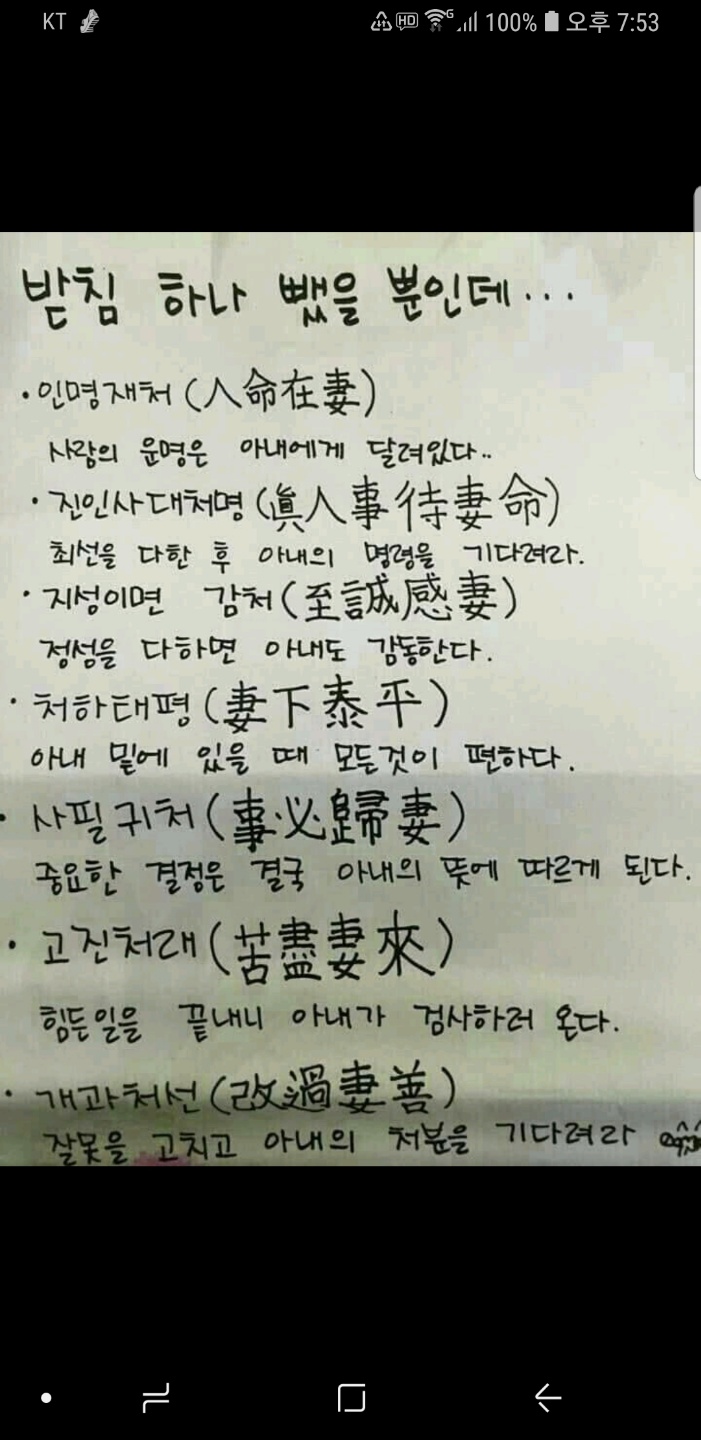 KT HD G 100% 오후 7:53
받침 하나 뺐을 뿐인데...
·인명재처 (人命在妻)
사람의 운명은 아내에게 달려있다..
·진인사대처명 (眞人事待妻命)
최선을 다한 후 아내의 명령을 기다려라.
·지성이면 감처 (至誠感妻)
정성을 다하면 아내도 감동한다.
·처하태평 (妻下泰平)
아내 밑에 있을 때 모든것이 편하다.
·사필귀처 (事必歸妻)
중요한 결정은 결국 아내의 뜻에 따르게 된다.
·고진처래 (苦盡妻來)
힘든일을 끝내니 아내가 검사하러 온다.
·개과처선 (改過妻善)
잘못을 고치고 아내의 처분을 기다려라